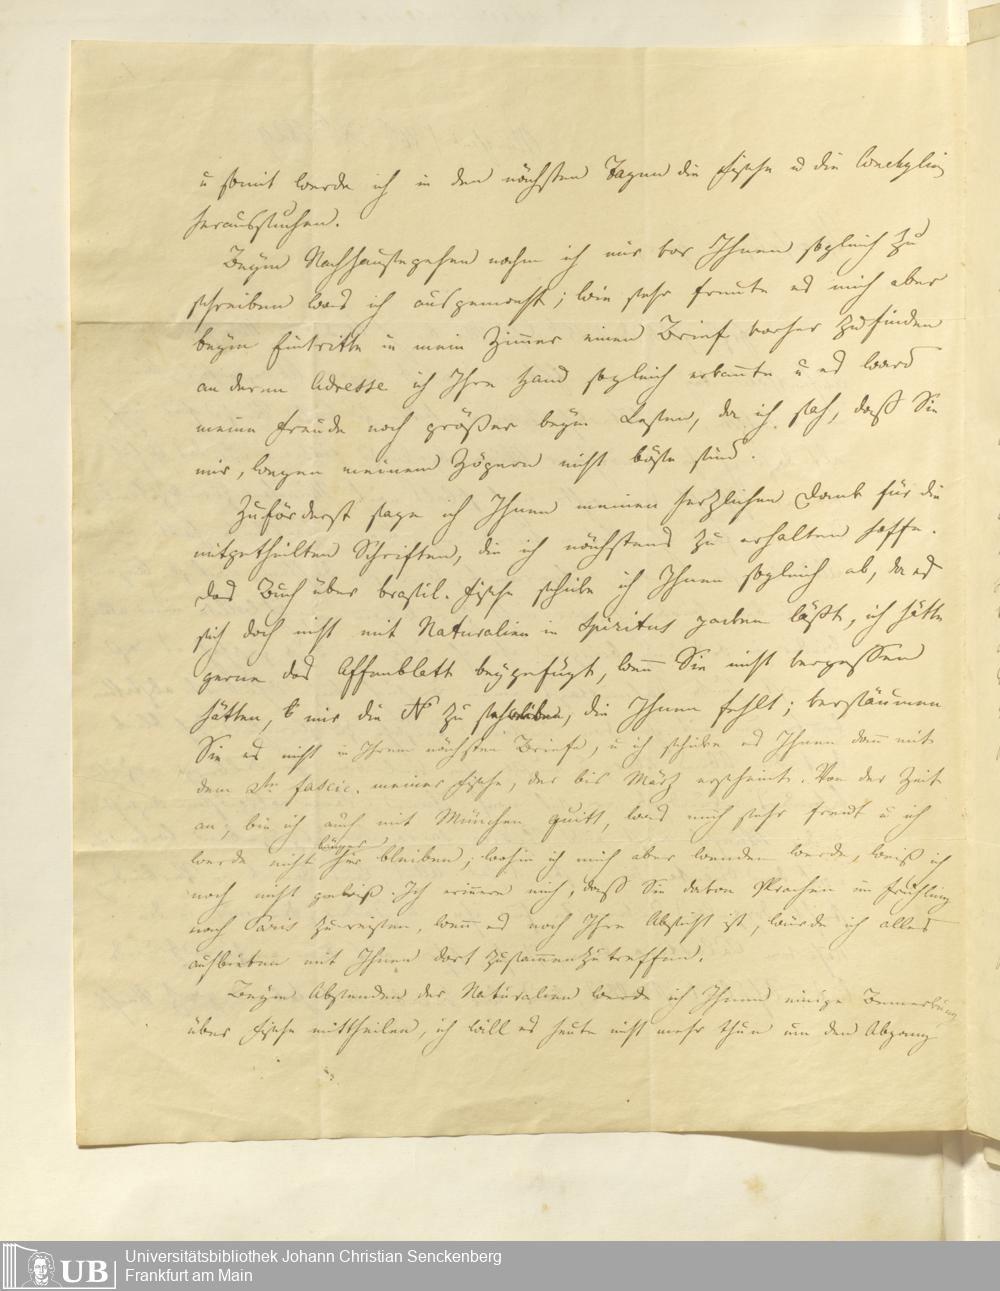 u somit werde ich in den nächsten Tagen die Fische u die Conchylien
heraussuchen.
Beym Nachhausegehen nahm ich mir vor Ihnen sogleich zu
schreiben was ich ausgemacht; wie sehr freute es mich aber
beym Eintritte in mein Zimer einen Brief vorher zu finden
an deren Adresse ich Ihre Hand sogleich erkannte u es ward
meine Freude noch größer beym Lesen, da ich sah, daß Sie
mir, wegen meinem Zögern nicht böse sind.
Zuförderst sage ich Ihnen meinen herzlichen Dank für die
mitgetheilten Schriften, die ich nächstens zu erhalten hoffe.
Das Buch über brasil. Fische schicke ich Ihnen sogleich ab, da es
sich doch nicht mit Naturalien in Spiritus packen läßt, ich hätte
gerne das Affenblatt beygefügt, wenn Sie nicht vergessen
hätten, mir die N° zu schreiben, die Ihnen fehlt; versäumen
Sie es nicht in Ihrem nächsten Briefe, u ich schicke es Ihnen dann mit
dem 2ten fascic. meiner Fische, der bis März erscheint. Von der Zeit
an, bin ich auch mit München quitt, was mich sehr freut u ich
werde nicht länger hier bleiben; wohin ich mich aber wenden werde, weiß ich
noch nicht gewiß. Ich erinnere mich, dass Sie davon sprachen im Frühling
nach Paris zu reisen, wenn es noch Ihre Absicht ist, würde ich alles
aufbieten mit Ihnen dort zusammenzutreffen.
Beym Absenden der Naturalien werde ich Ihnen einige Bemerkung
über Fische mittheilen, ich will es heute nicht mehr thun um den Abgang
UB
Universitätsbibliothek Johann Christian Senckenberg
Frankfurt am Main